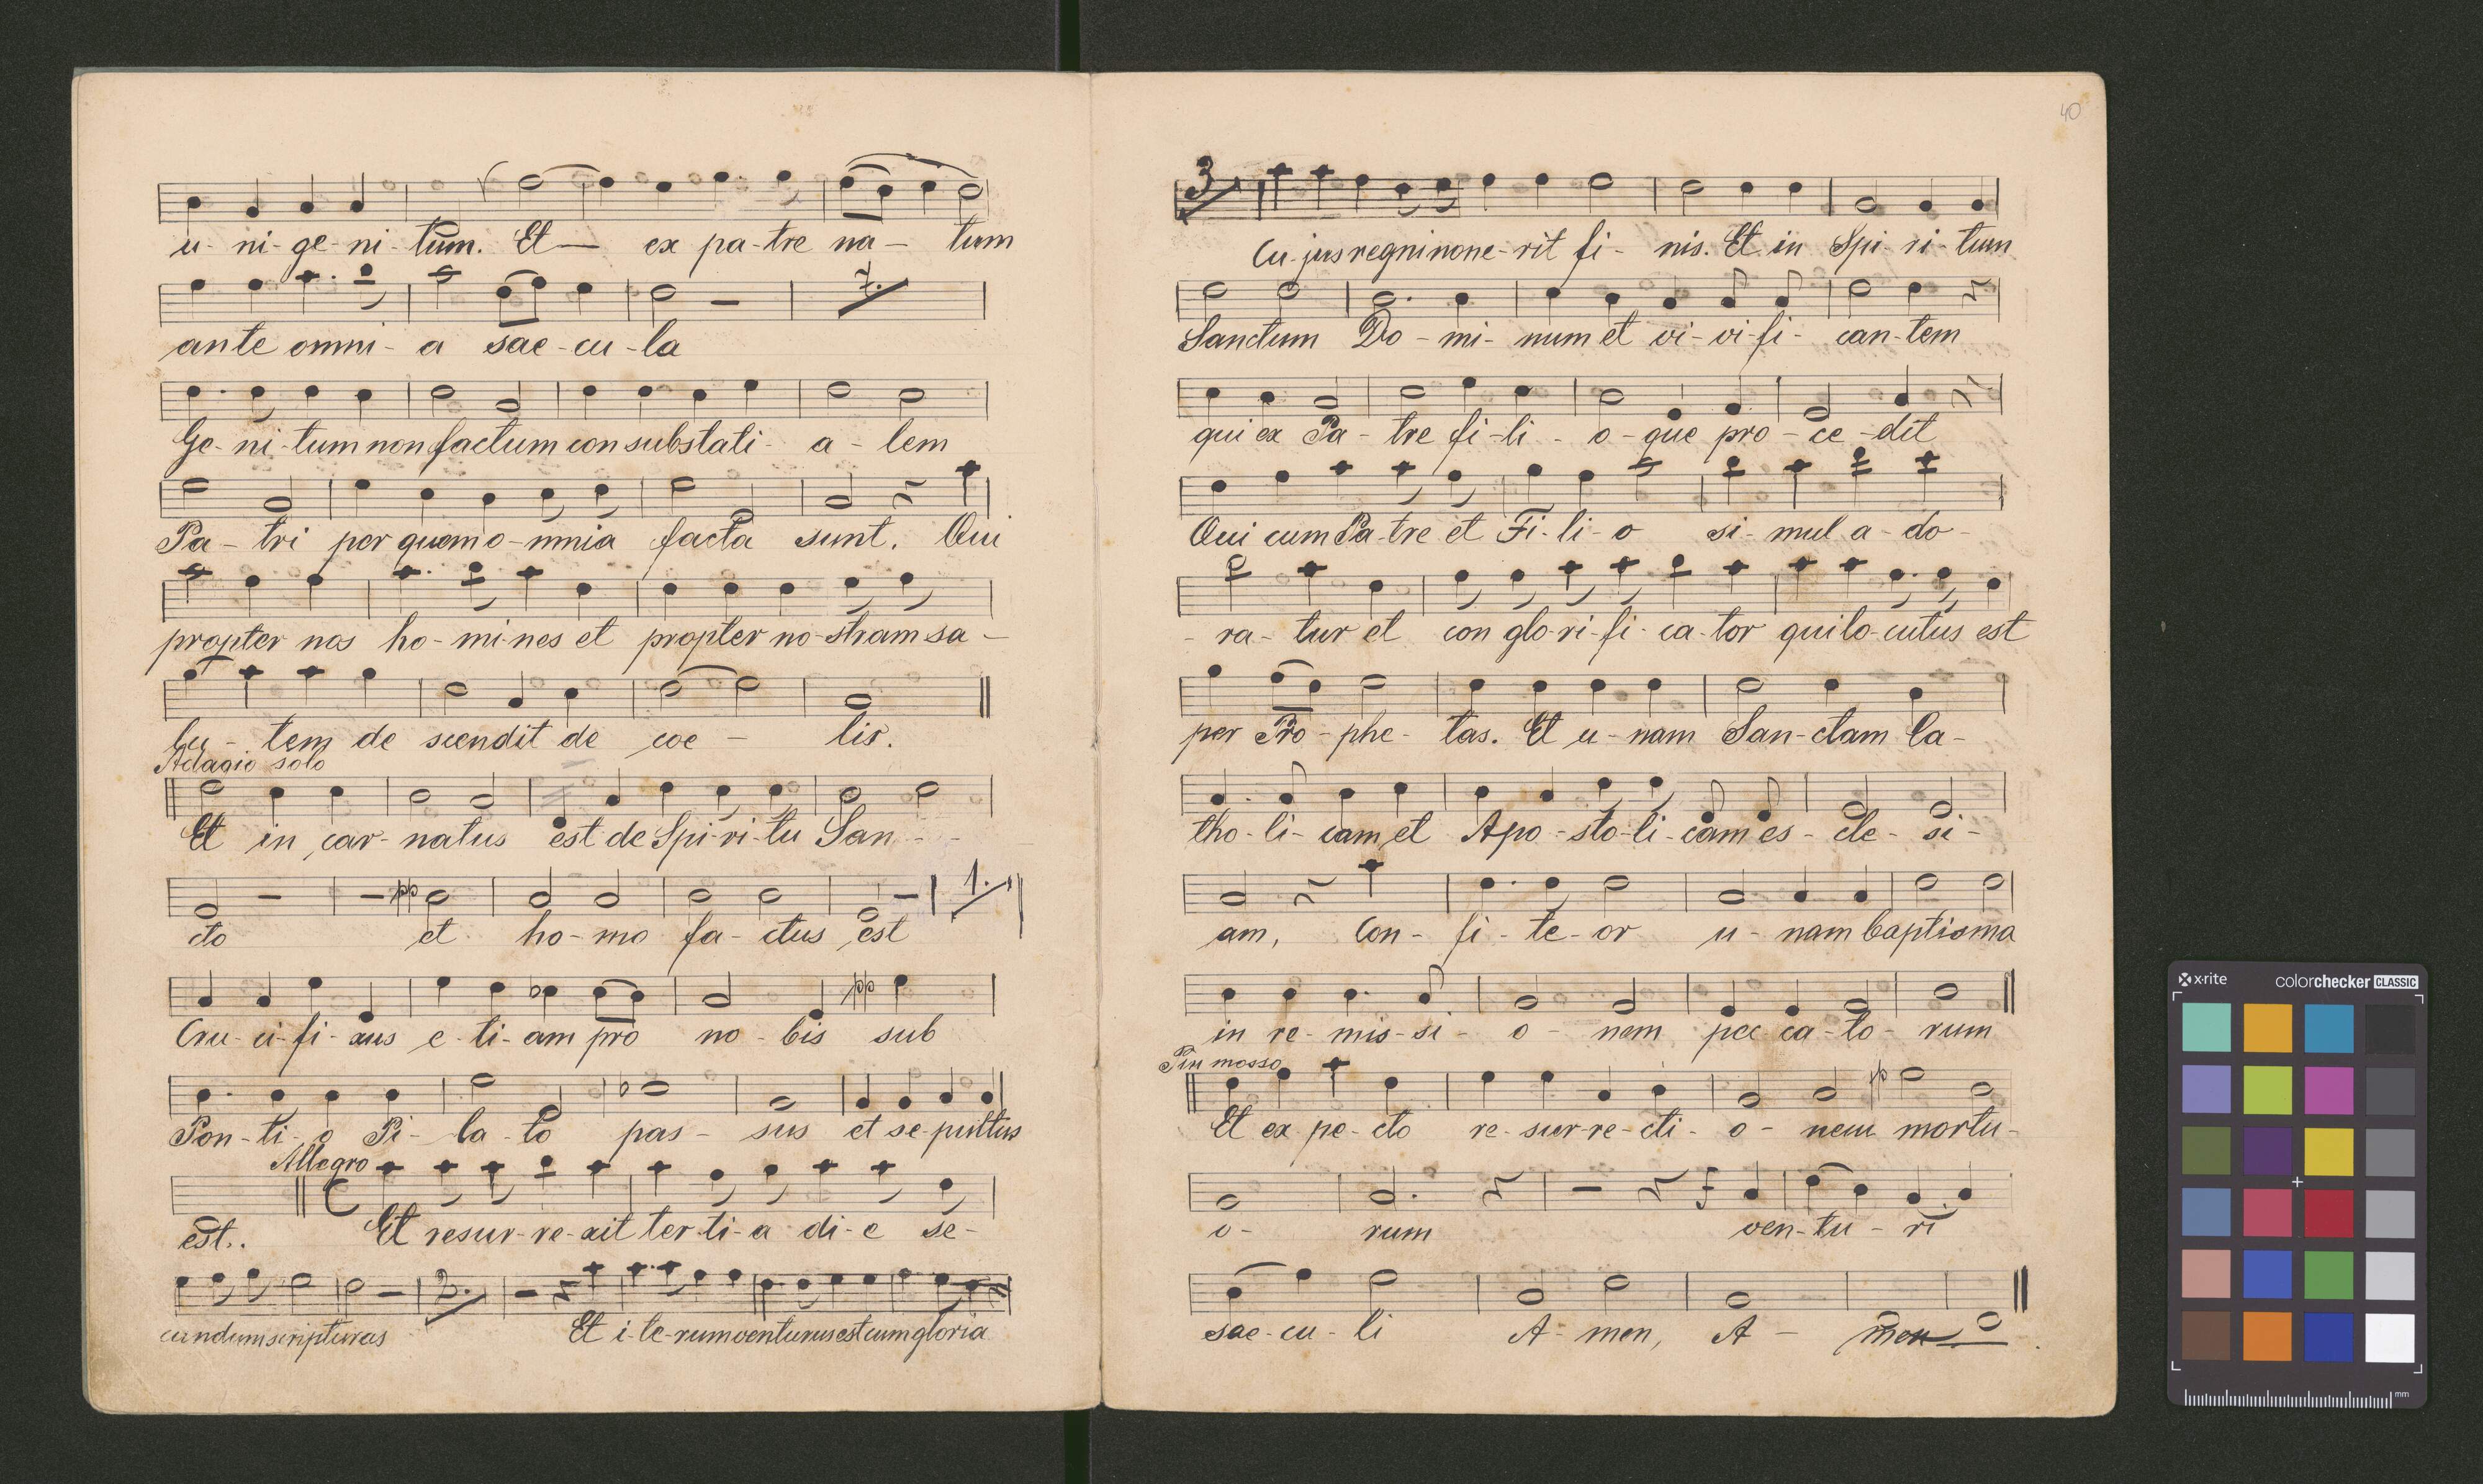 u- ni- ge- ni- tum. Et— ex pa- tre na- tum
7.
ante omni- a sae- cu- la
Ge- ni- tum non factum con substati- a- lem
Pa- tri per quem o- mnia facta sunt. Qui
propter nos ho- mi- nes et propter no- stram sa-
lu- tem de scendit de coe- lis.
Adagio solo
Et in car- natus est de Spi- ri- tu San- - -
pp 1.
cto et ho- mo fa- ctus est
pp
Cru- ci- fi- xus e- ti- am pro no- bis sub
Pon- ti- o Pi- la- to pas- sus et se- pultus
Allegro
C
est.. Et resur- re- xit ter- ti- a di- e se-
2.
cundum scripturas Et i- te- rum venturus est cum gloria
40
3
Cu- jus regni non e- rit fi- nis. Et in Spi- ri- tum
Sanctum Do- mi- num et vi- vi- fi- can- tem
qui ex Pa- tre fi- li- o- que pro- ce- dit
Qui cum Pa- tre et Fi- li- o si- mul a- do-
- ra- tur et con glo- ri- fi- ca- tor qui lo- cutus est
per Pro- phe- tas. Et u- nam San- ctam Ca-
tho- li- cam et Apo- sto- li- cam es- cle- si-
am, Con- fi- te- or u- nam baptisma
in re- mis- si- o- nem pec ca- to- rum
Piu mosso
p
Et ex pe- cto re- sur- re- cti- o- nem mortu-
f
o- rum ven- tu- ri
sae- cu- li A- men, A- men
x-rite colorchecker CLASSIC
mm